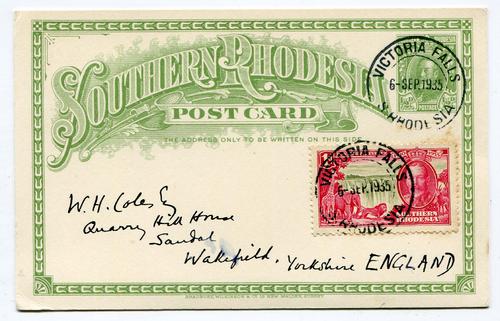 SOUTHERN RHODESIA
POST CARD
THE ADDRESS ONLY TO BE WRITTEN ON THIS SIDE
VICTORIA FALLS
6-SEP.1935
S. RHODESIA
POSTAGE
VICTORIA FALLS
6-SEP.1935
S. RHODESIA
SOUTHERN
RHODESIA
W.H. Coles Esq
Quarry Hill House
Sandal
Wakefield, Yorkshire ENGLAND
BRADBURY, WILKINSON & Co LD NEW MALDEN, SURREY.